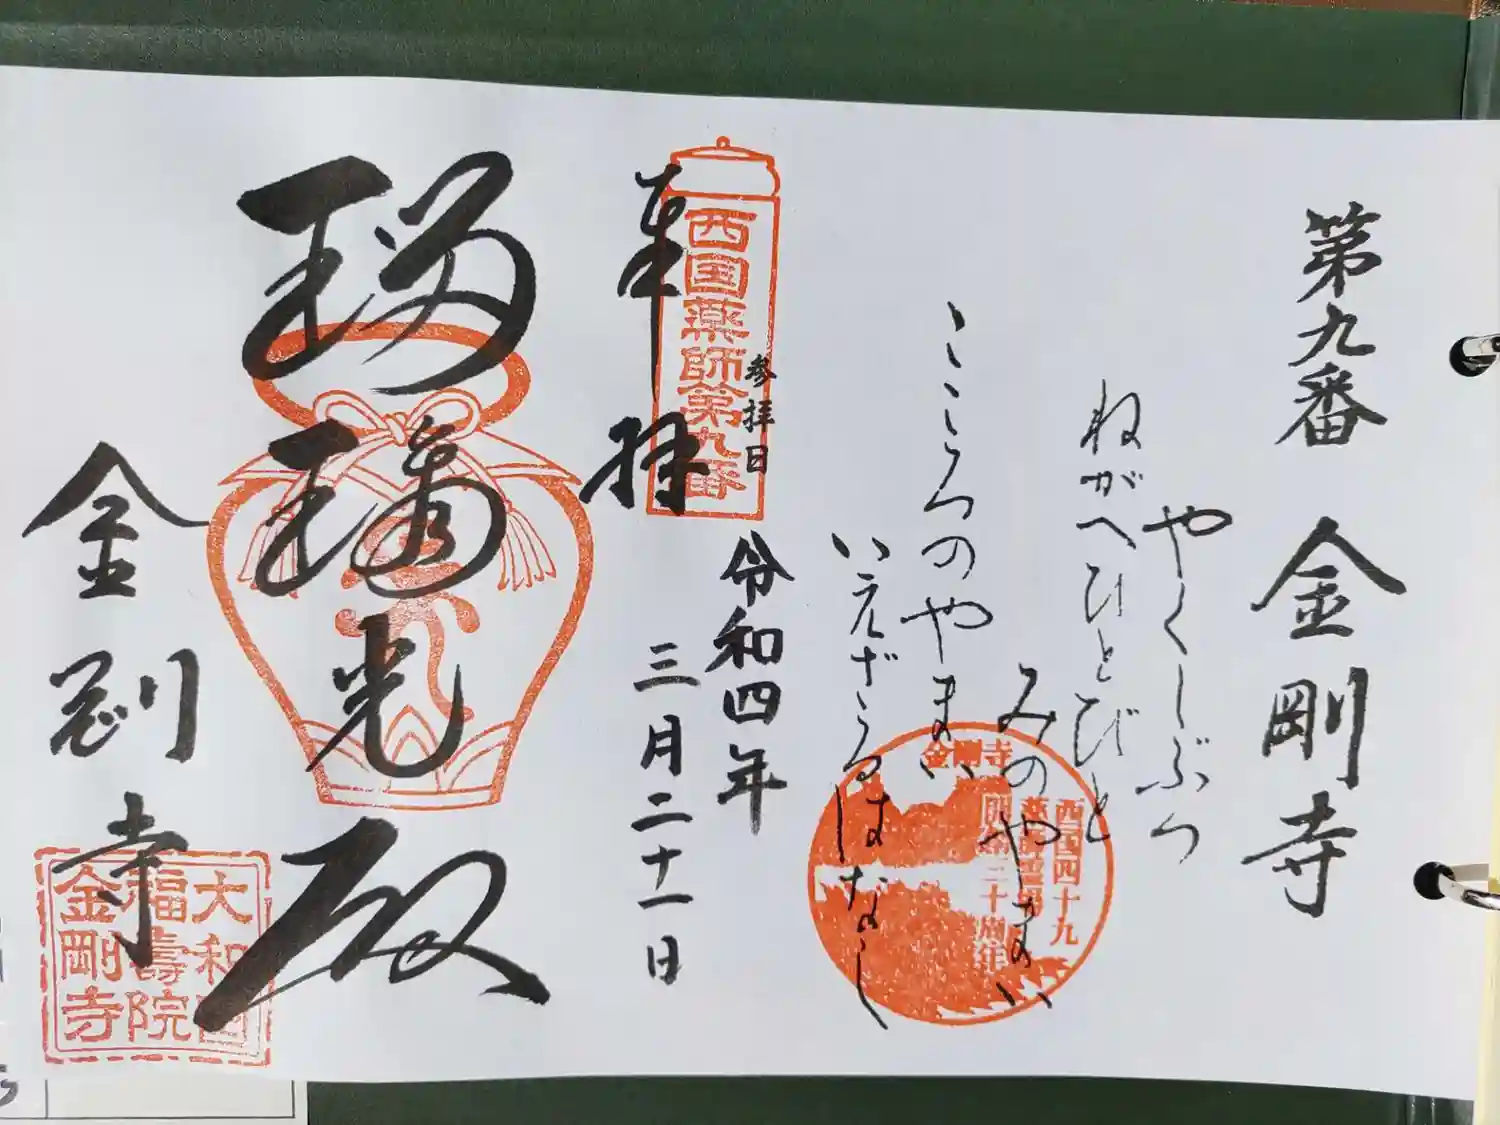 第九番 金剛寺
やくしぶつ
ねがへひとびと
みのやまい
こころのやまい
いえざるはなし
金剛寺
西国四十九
薬師霊場
開創三十周年
西国薬師第九番
参拝日
令和四年
三月二十一日
奉拝
瑠璃光殿
金剛寺
大和国
福壽院
金剛寺